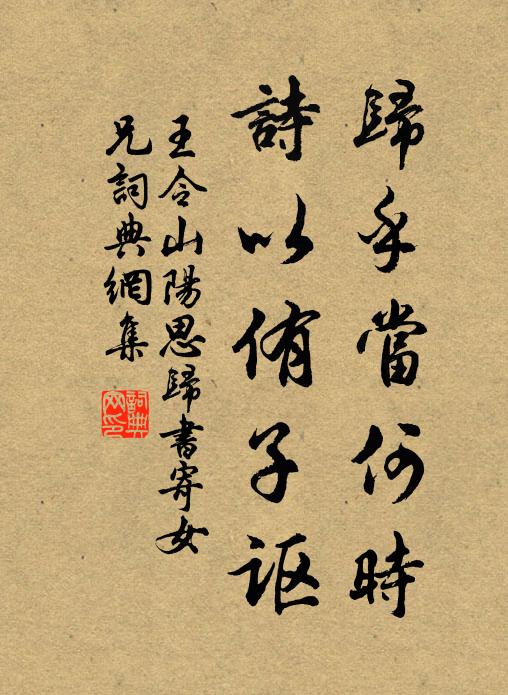 歸乎當何時
詩以侑子謳
王令山陽思歸書寄女
兄詞典網集
詞典
网印